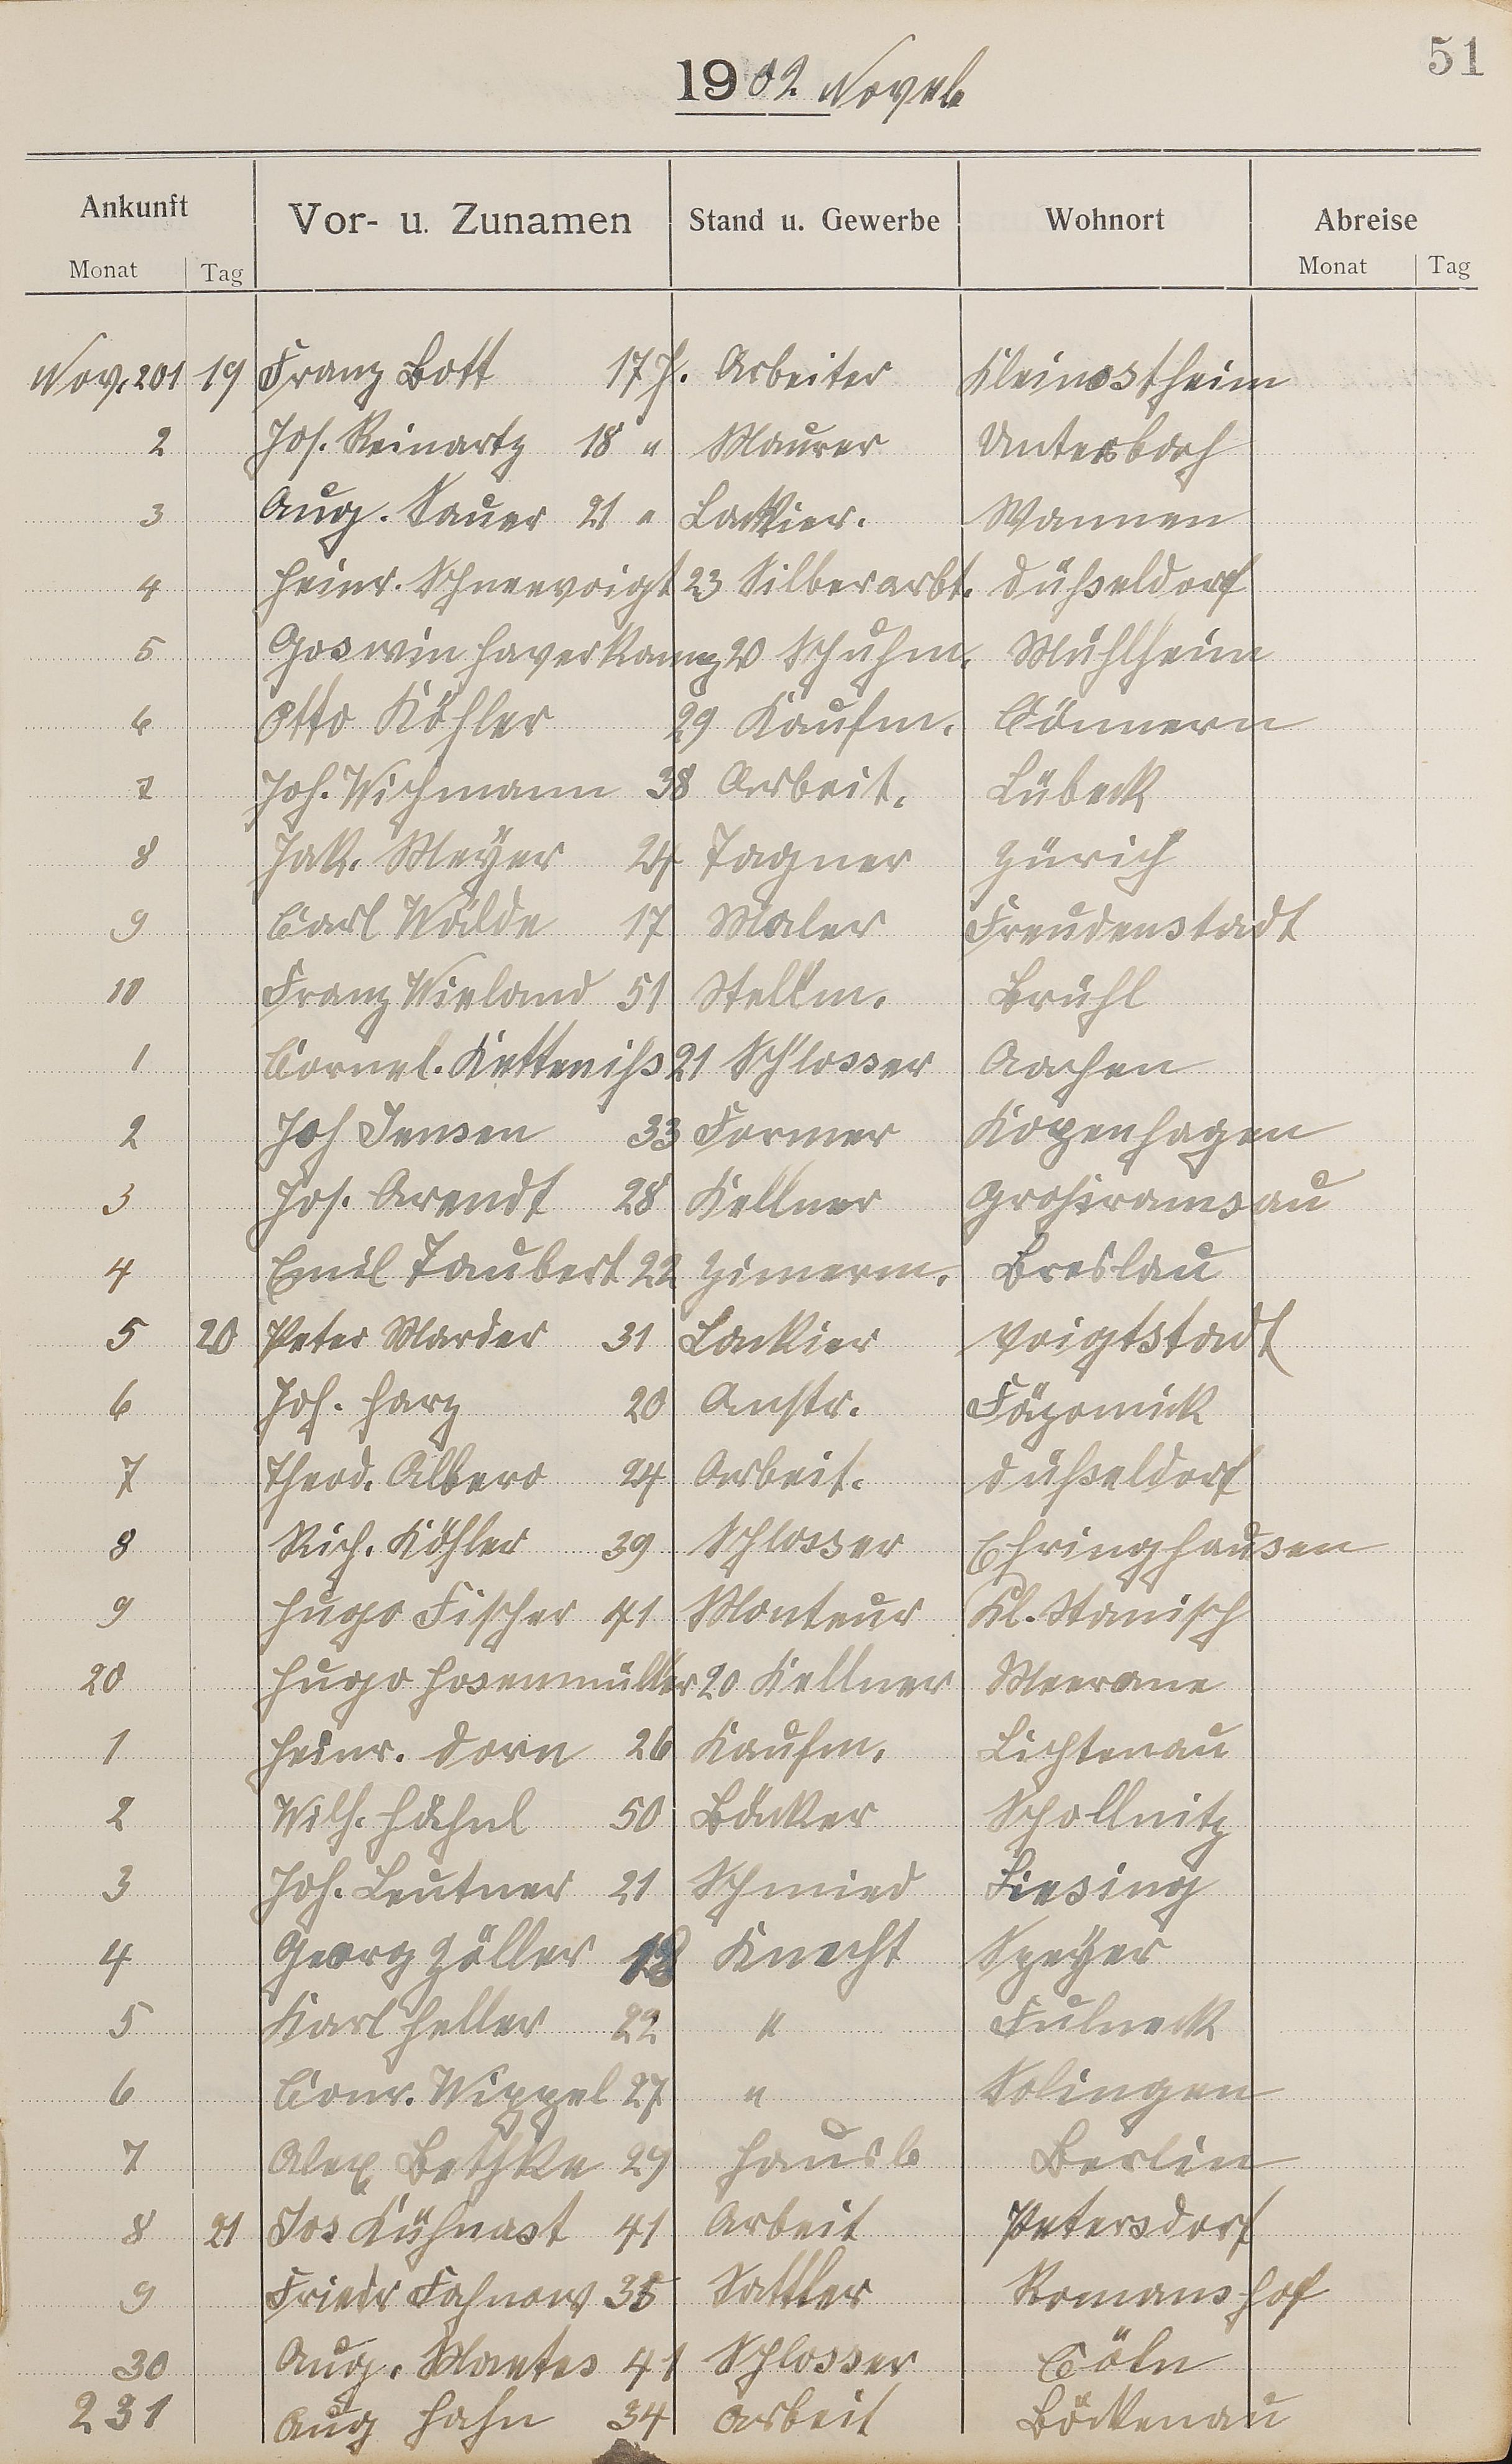 51
1902. Novemb
Ankunft Vor- u. Zunamen Stand u. Gewerbe Wohnort Abreise
Monat Tag Monat Tag
Nov. 201 19 Franz Bott 17 J. Arbeiter Kleinostheim
2 Jos. Reinartz 18 " Maurer Untersbach
3 Aug. Sauer 21 " Lackier. Wannen
4 Heinr. Schneevoigt 23 Silberarbt. Düsseldorf
5 Goswin Haverkamp 20 Schuhm. Mühlheim
6 Otto Köhler 29 Kaufm. Cönnern
7 Joh. Wichmann 38 Arbeit. Lübeck
8 Jak. Meÿer 24 Tagner Zürich
9 Carl Wälde 17 Maler Freudenstadt
10 Franz Wieland 51 Stellm. Brühl
1 Cornel. Ketteniss 21 Schlosser Aachen
2 Joh Jensen 33 Former Kopenhagen
3 Jos. Arendt 28 Kellner Grossramsau
4 Emil Taubert 22 Zimerm. Breslau
5 20 Peter Marder 31 Lackier Voigtstadt
6 Joh. Harz 20 Anstr.
7 Theod. Albero 24 Arbeit. Düsseldorf
8 Rich. Köhler 39 Schlosser Ehringhausen
9 Hugo Fischer 41 Monteur Kl. Stanisch
20 Hugo Hosenmüller 20 Kellner Meerane
1 Heinr. Dorn 26 Kaufm. Lichtenau
2 Wilh. Hähnl 50 Bäcker Schollnitz
3 Joh. Leutner 21 Schmied Liesing
4 Georg Zöller 18 Knecht Speÿer
5 Karl Heller 22 " Fulneck
6 Conr. Wippel 27 " Solingen
7 Alex Bethke 29 Hausb Berlin
8 21 Jos Kühnast 41 Arbeit Petersdorf
9 Friedr Fahnow 35 Sattler Romanshof
30 Aug. Mantes 41 Schlosser Cöln
231 Aug Hahn 34 Arbeit Böckenau